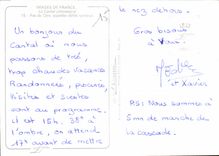 IMAGES DE FRANCE
Le Cantal pittoresque
Un bonjour du
Cantal où nous
passons de très,
trop chaudes vacances
Randonnées, pauses,
visites et siestes
sont au programme.
il est 15h. 38° à
l'ombre, on attend
17h avant de mettre
le nez dehors.
Gros bisous
à Vous.
et Xavier
PS: Nous sommes à
5mn de marche de
la cascade.